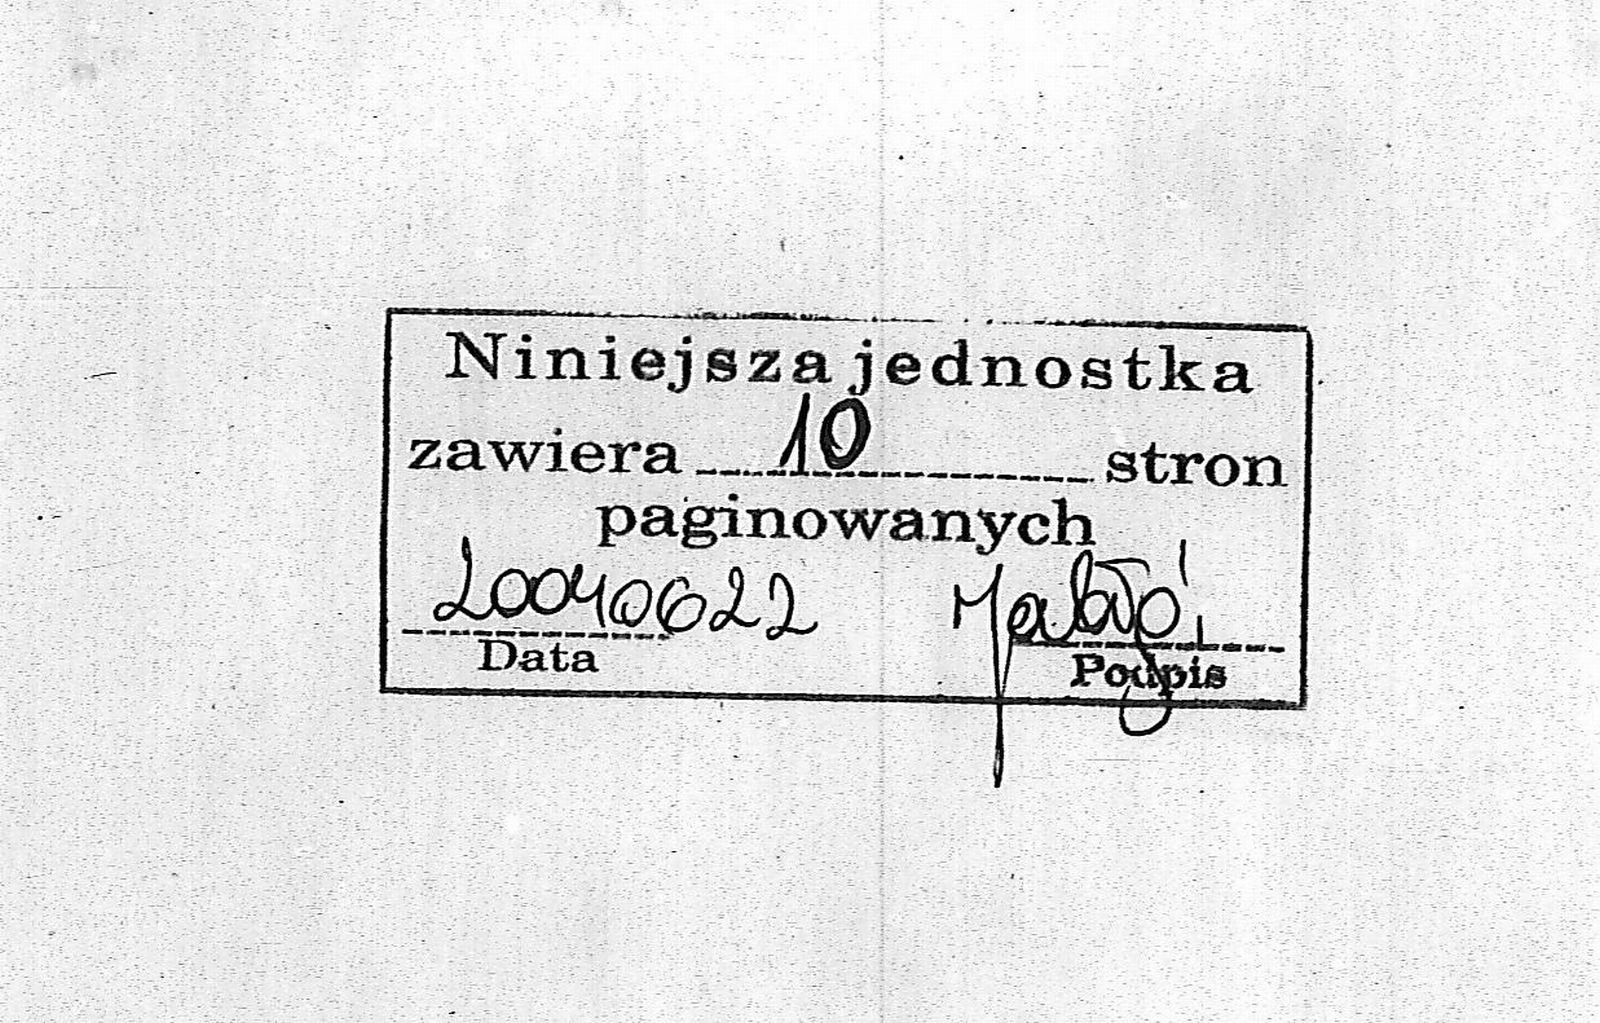 Niniejsza jednostka
zawiera 10 stron
paginowanych
20040622
Data Podpis